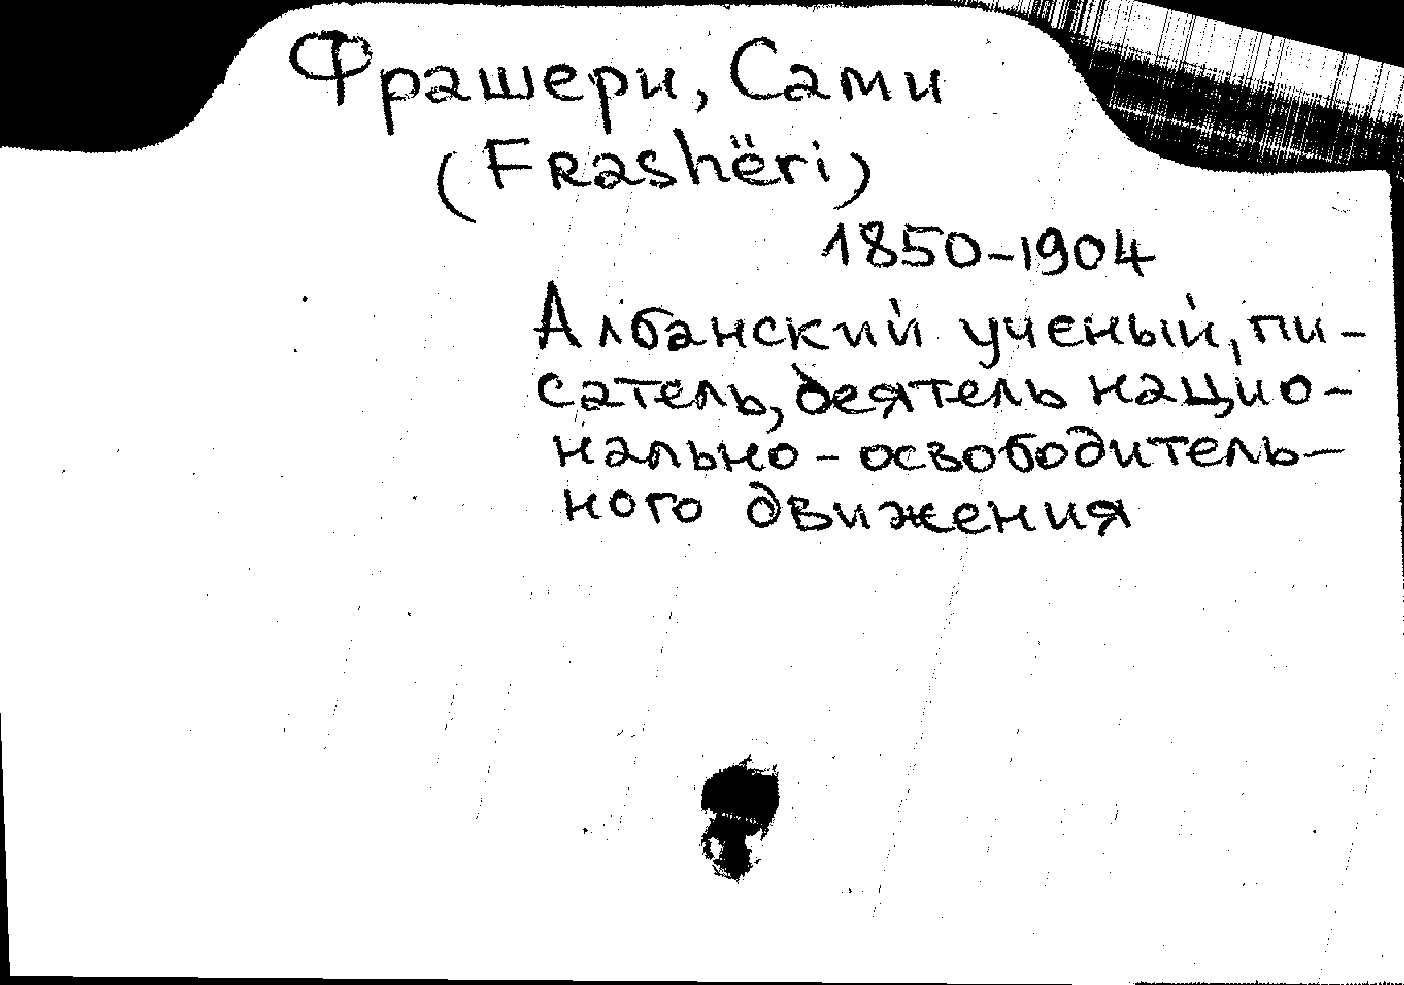 Фрашери, Сами
(Frashëri)
1850-1904
Албанский ученый, пи-
сатель, деятель нацио-
нально-освободитель-
ного движения